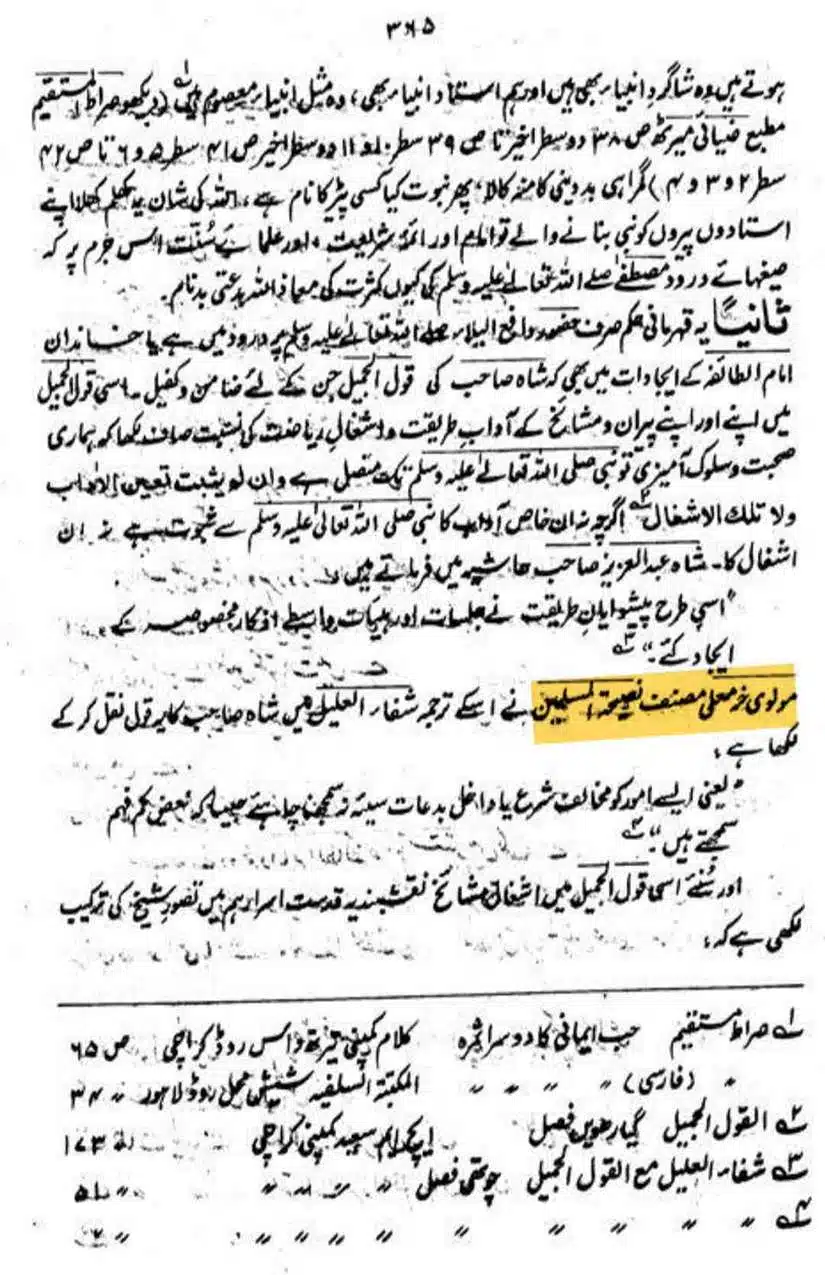 ۳۶۵
ہوتے ہیں وہ شاگردِ انبیاء بھی ہیں اور ہم استاد انبیاء بھی، وہ مثل انبیاء معصوم ہیں (دیکھو صراط المستقیم
مطبع ضیائی میرٹھ ص ۳۸ دو سطر اخیر تا ص ۳۹ سطر ۱۰ و ۱۱ دو سطر اخیر ص ۴۱ سطر ۵ و ۶ تا ص ۴۲
سطر ۲ و ۳ و ۴) گمراہی بددینی کا منہ کالا، پھر نبوت کیا کسی پیڑ کا نام ہے، اللہ کی شان یہ کھلم کھلا اپنے
استادوں پیروں کو نبی بنانے والے تو امام اور ائمہ شریعت، اور علمائے سُنّت اس جرم پر کہ
صیغہائے درود مصطفٰے صلے اللہ تعالےٰ علیہ وسلم کی کیوں کثرت کی معاذ اللہ بدعتی بدنام۔
ثانیاً یہ قہرمانی حکم صرف حضور دافع البلاء صلے اللہ تعالےٰ علیہ وسلم پر درود میں ہے یا خاندان
امام الطائفہ کے ایجادات میں بھی کہ شاہ صاحب کی قول الجمیل جن کے لئے ضامن و کفیل۔ اسی قول الجمیل
میں اپنے اور اپنے پیران و مشائخ کے آداب طریقت و اشغال ریاضت کی نسبت صاف لکھا کہ ہماری
صحبت و سلوک آمیزی تو نبی صلی اللہ تعالےٰ علیہ وسلم تک متصل ہے وان لم یثبت تعین الاداب
ولا تلک الاشغال ۲؎ اگرچہ نہ ان خاص آداب کا نبی صلی اللہ تعالیٰ علیہ وسلم سے ثبوت ہے نہ ان
اشغال کا۔ شاہ عبدالعزیز صاحب حاشیہ میں فرماتے ہیں:
"اسی طرح پیشوایانِ طریقت نے جلسات اور ہیئات واسطے اذکار مخصوصہ کے
ایجاد کئے۔" ۳؎
مولوی خرم علی مصنف نصیحۃ المسلمین نے اسکے ترجمہ شفاء العلیل میں شاہ صاحب کا یہ قول نقل کرکے
لکھا ہے:
"یعنی ایسے امور کو مخالف شرع یا داخل بدعات سیئہ نہ سمجھنا چاہئے جیسا کہ بعض کم فہم
سمجھتے ہیں" ۴؎
اور سُنئے اسی قول الجمیل میں اشغال مشائخ نقشبندیہ قدست اسرارہم میں تصور شیخ کی ترکیب
لکھی ہے کہ:
۱؎ صراط مستقیم حب ایمانی کا دوسرا ثمرہ کلام کمپنی تیرتھ داس روڈ کراچی ص ۶۵
" (فارسی) " " " " المکتبۃ السلفیہ شیش محل روڈ لاہور " ۳۴
۲؎ القول الجمیل گیارھویں فصل ایچ ایم سعید کمپنی کراچی ۱۷۳
۳؎ شفاء العلیل مع القول الجمیل چوتھی فصل " " " " " ۵۱
۴؎ " " " " " " " " " "